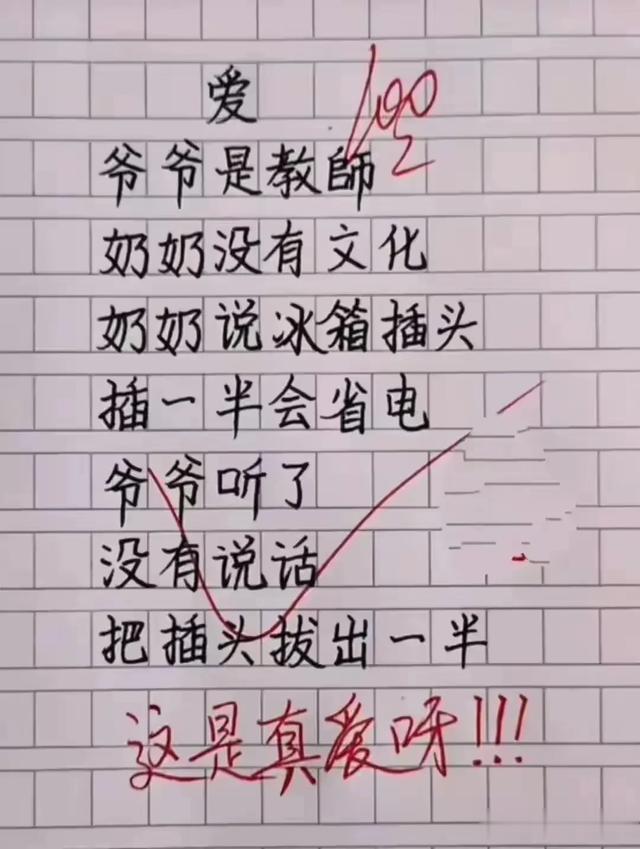 爱
100
爷爷是教師
奶奶没有文化
奶奶说冰箱插头
插一半会省电
爷爷听了
没有说话
把插头拔出一半
这是真爱呀!!!